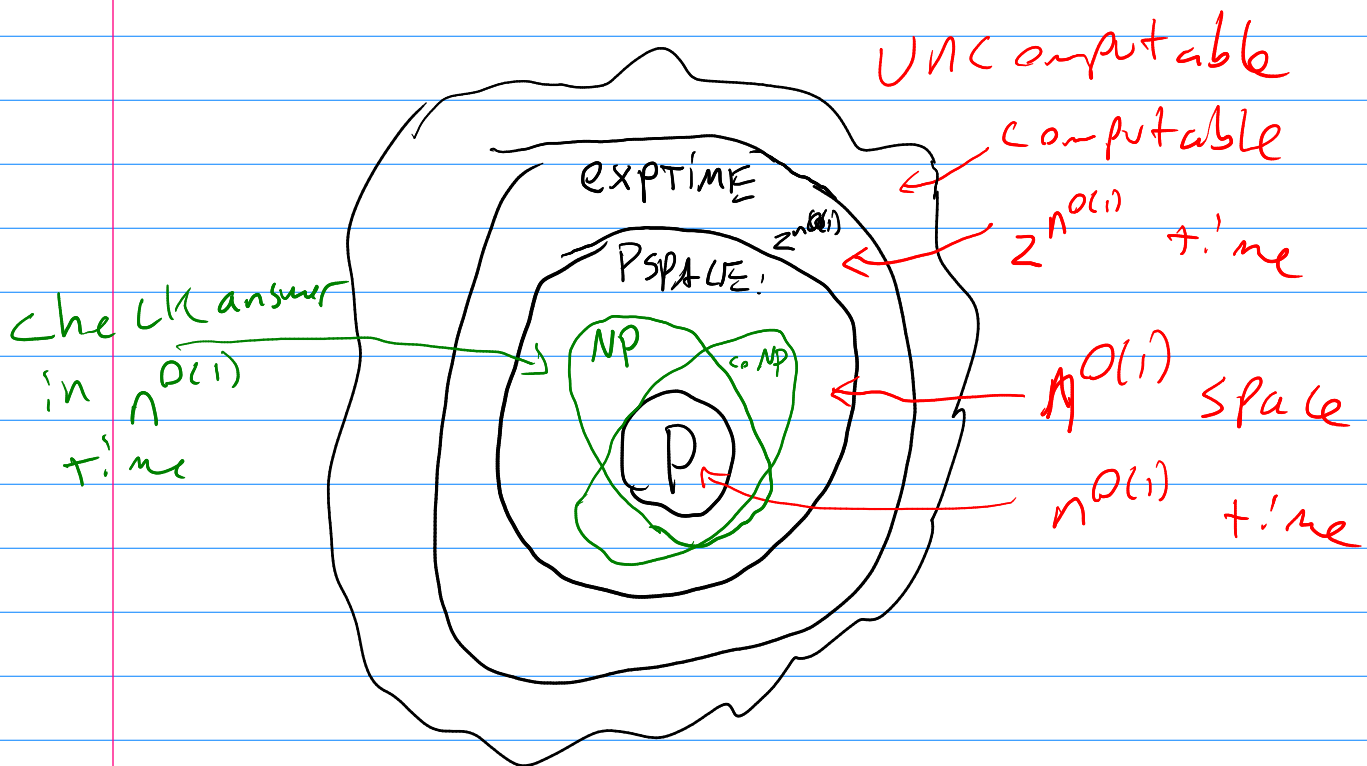 Uncomputable
computable
EXPTIME
2^{n^{O(1)}}
2^{n^{O(1)}} time
PSPACE
check answer
in n^{O(1)}
time
NP
coNP
n^{O(1)} space
P
n^{O(1)} time